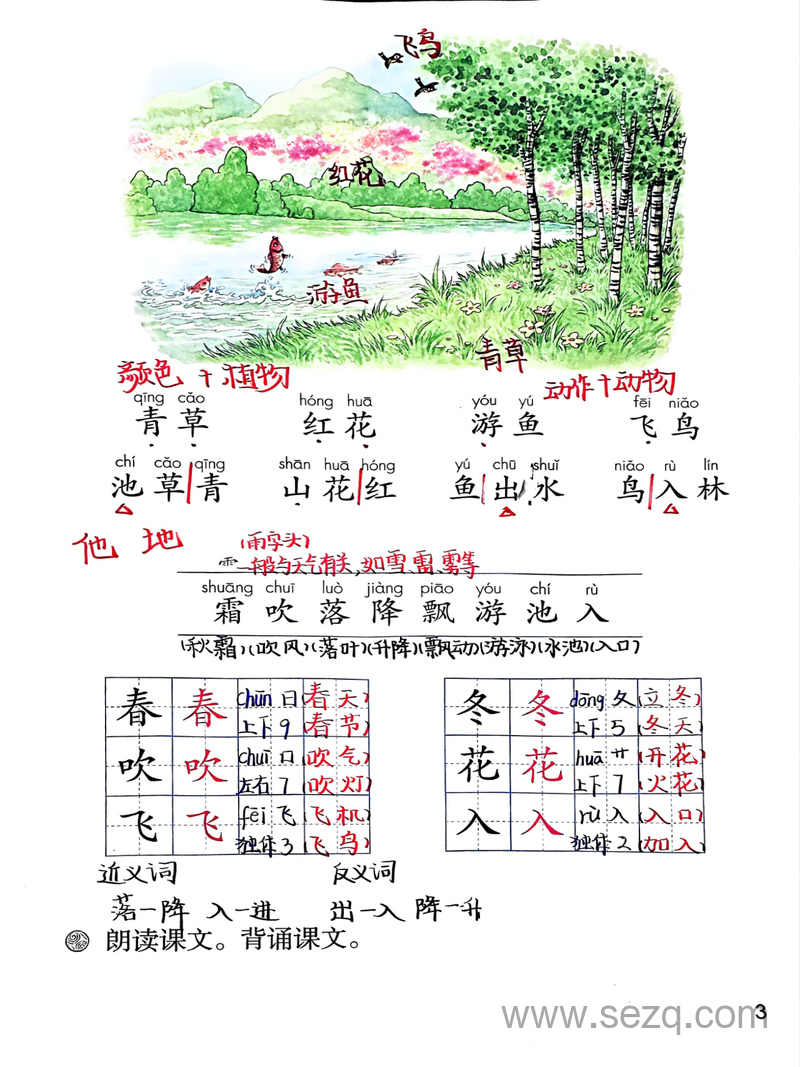 飞鸟
红花
游鱼
青草
颜色+植物 动作+动物
qīng cǎo hóng huā yóu yú fēi niǎo
青草 红花 游鱼 飞鸟
chí cǎo qīng shān huā hóng yú chū shuǐ niǎo rù lín
池草青 山花红 鱼出水 鸟入林
他 地 (雨字头)
⻗一般与天气有关,如雪、雷、雾等
shuāng chuī luò jiàng piāo yóu chí rù
霜 吹 落 降 飘 游 池 入
(秋霜)(吹风)(落叶)(升降)(飘动)(游泳)(水池)(入口)
春 春 chūn 日 (春天) 冬 冬 dōng 夂 (立冬)
上下 9 (春节) 上下 5 (冬天)
吹 吹 chuī 口 (吹气) 花 花 huā 艹 (开花)
左右 7 (吹灯) 上下 7 (火花)
飞 飞 fēi 飞 (飞机) 入 入 rù 入 (入口)
独体 3 (飞鸟) 独体 2 (加入)
近义词 反义词
落—降 入—进 出—入 降—升
朗读课文。背诵课文。
www.sezq.com
3